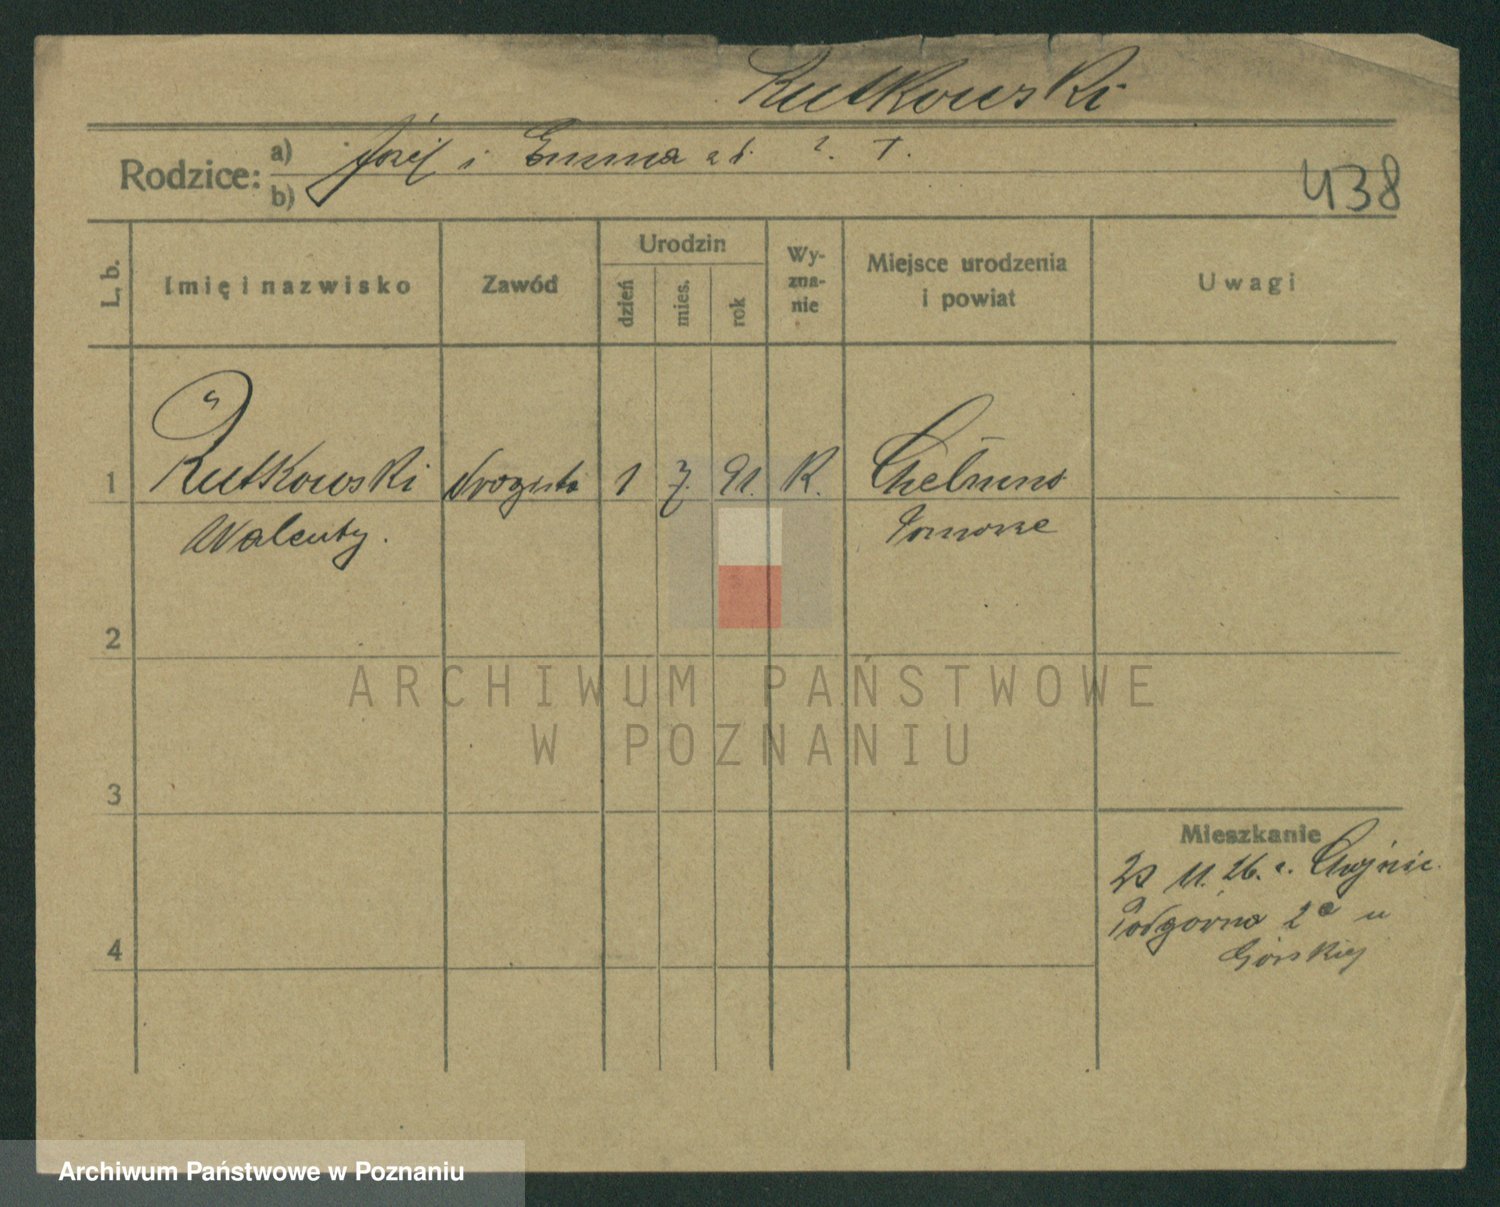 Rutkowski
Rodzice: a) Józef i Emma z d. ? T.
b)
438
L. b.
Imię i nazwisko
Zawód
Urodzin
dzień
mies.
rok
Wy-
zna-
nie
Miejsce urodzenia
i powiat
Uwagi
1 Rutkowski drogista 1 7. 91. R. Chełmno
Walenty. Pomorze
2
3
4
Mieszkanie
23 11. 26. z. Chojnic.
Podgórna 2a u
Górskiej
ARCHIWUM PAŃSTWOWE
W POZNANIU
Archiwum Państwowe w Poznaniu